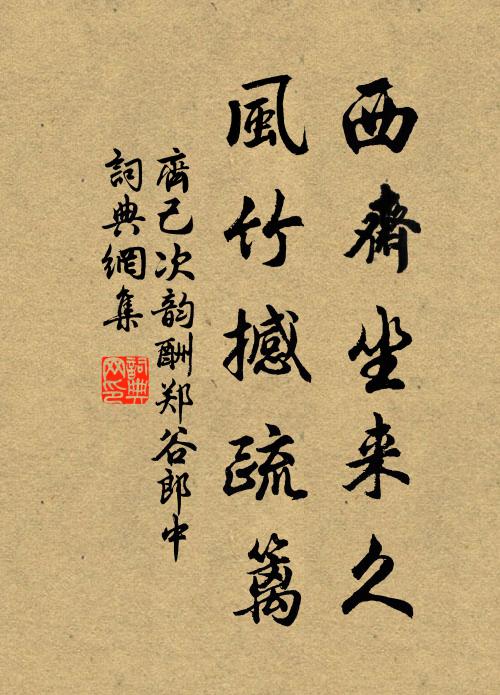 西齋坐来久
風竹撼疏篱
齊己次韵酬郑谷郎中
詞典網集
詞典网印